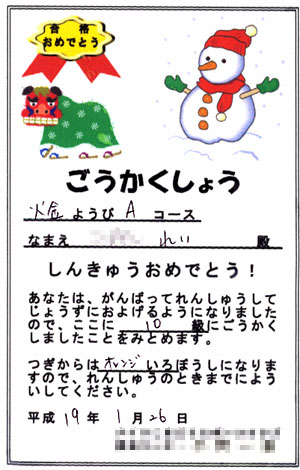 合格
おめでとう
ごうかくしょう
火金 ようび A コース
なまえ れい 殿
しんきゅうおめでとう！
あなたは、がんばってれんしゅうして
じょうずにおよげるようになりました
ので、ここに 10 級にごうかく
しましたことをみとめます。
つぎからはオレンジいろぼうしになりま
すので、れんしゅうのときまでによう
いしてください。
平成 19 年 1 月 26 日